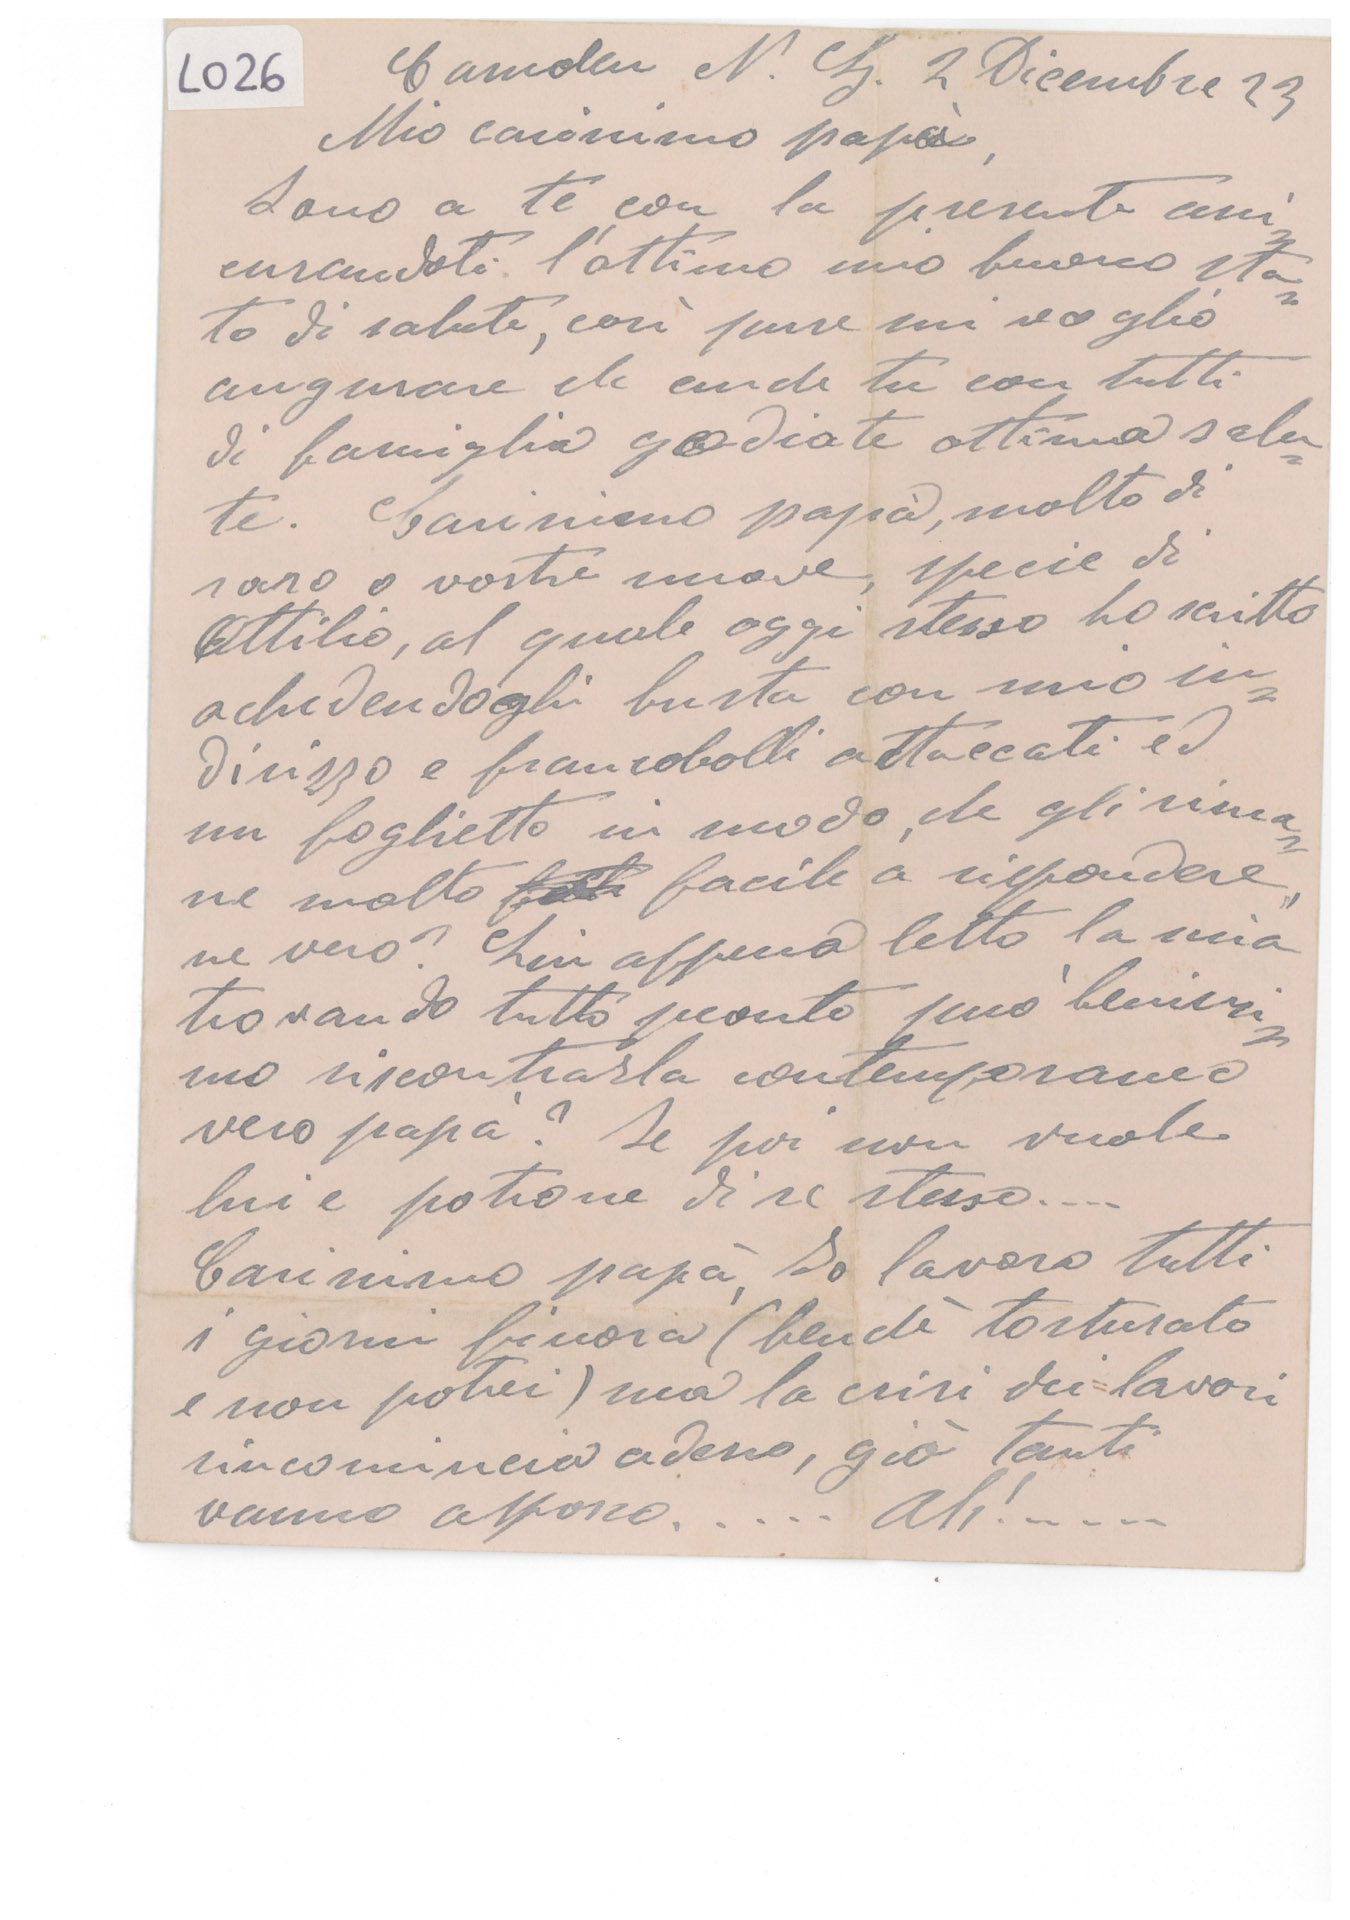 L026
Camden N. J. 2 Dicembre 23
Mio carissimo papà,
Sono a te con la presente assi=
curandoti l'ottimo mio buono sta=
to di salute, così pure mi voglio
augurare che anche tu con tutti
di famiglia godiate ottima salu=
te. Carissimo papà, molto di
raro o vostre nuove, specie di
Attilio, al quale oggi stesso ho scritto
achidendogli busta con mio in=
dirizzo e francobolli attaccati ed
un foglietto in modo, che gli rima=
ne molto facile a rispondere,
ne vero? Lui appena letto la mia
trovando tutto pronto può benissi=
mo riscontrarla contemporaneo
vero papà? Se poi non vuole
lui e patrone di se stesso....
Carissimo papà, Io lavoro tutti
i giorni finora (benchè torturato
e non potrei) ma la crisi dei lavori
rincomincia adesso, già tanti
vanno asspasso...... Ah!.....